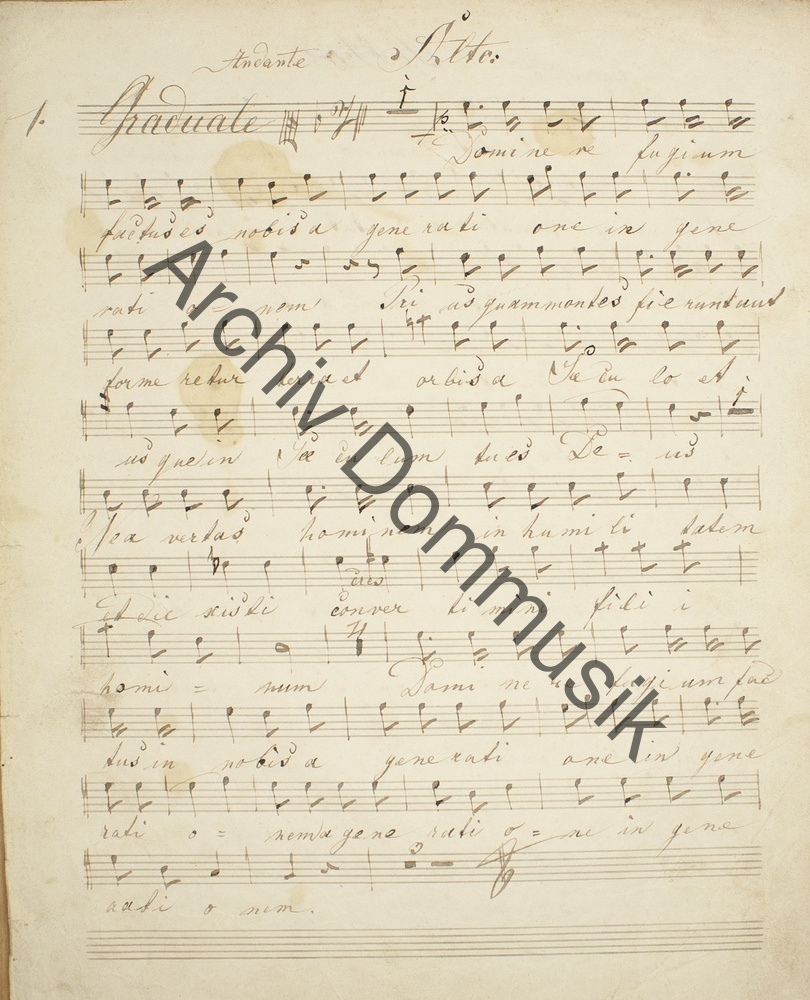 Andante Alto:
1. Graduale 1 p:
Domine re fugium
factus es nobis a gene rati one in gene
rati o = nem Pri us quam montes fie runt aut
forme retur terra et orbis a Sæ cu lo et
1
us que in Sæ cu lum tu es De = us
Nea vertas hominem in humi li tatem
cres
et dic xisti conver ti mini fili i
4
homi = num Domi ne re fugi um fac
tus in nobis a gene rati one in gene
rati o = nem a gene rati o = ne in gene
3
rati o nem.
Archiv Dommusik